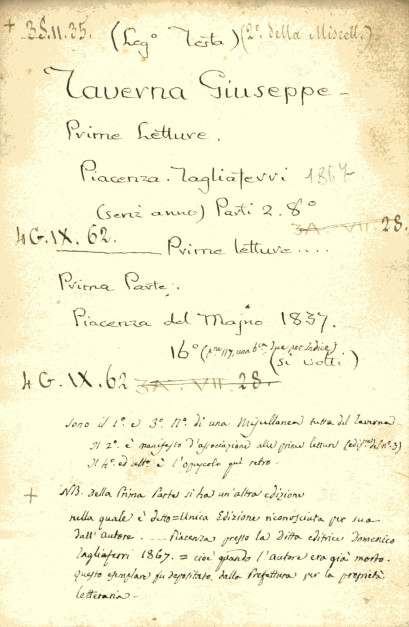 + 3S.11.35. (Leg.° Testa) (2°. della Miscell.)
Taverna Giuseppe -
Prime Letture.
Piacenza. Tagliaferri 1867
(senz'anno) Parti 2. 8°
3A - VII - 28.
4 G. IX. 62. Prime letture ....
Prima Parte.
Piacenza del Majno 1837.
16° (pne 117, una bca, due per Indice)
(si volti)
4 G. IX. 62 3A. VII. 28.
Sono il 1°. e 3°. N°. di una Miscellanea tutta del Taverna
Il 2°. è manifesto d'associazione alle prime letture (ediz.ne del n°. 3)
Il 4°. ed ulto. è l'opuscolo quì retro.
+ NB. della Prima Parte si ha un'altra edizione
nella quale è detto = Unica Edizione riconosciuta per sua
dall'autore. .... Piacenza presso la Ditta editrice Domenico
Tagliaferri 1867. = cioè quando l'autore era già morto.
questo esemplare fu depositato, dalla Prefettura per la proprietà
letteraria.